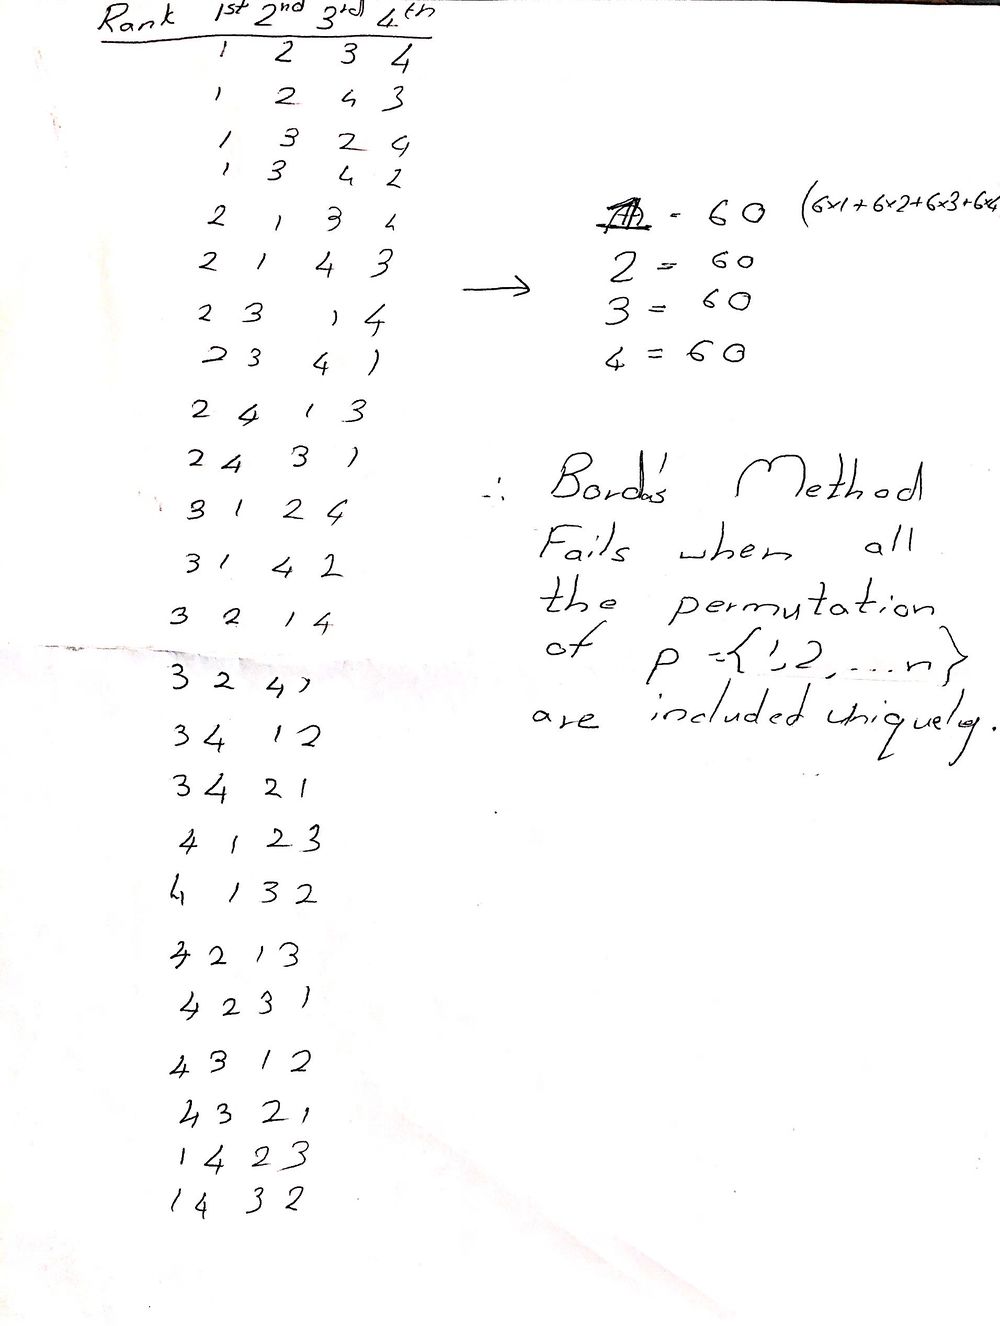 Rank 1st 2nd 3rd 4th
1 2 3 4
1 2 4 3
1 3 2 4
1 3 4 2
2 1 3 4
2 1 4 3
2 3 1 4
2 3 4 1
2 4 1 3
2 4 3 1
3 1 2 4
3 1 4 2
3 2 1 4
3 2 4 1
3 4 1 2
3 4 2 1
4 1 2 3
4 1 3 2
4 2 1 3
4 2 3 1
4 3 1 2
4 3 2 1
1 4 2 3
1 4 3 2
→
= 60 (6×1+6×2+6×3+6×4
2 = 60
3 = 60
4 = 60
∴ Borda's Method
Fails when all
the permutation
of p = {1,2, ... n}
are included uniquely.